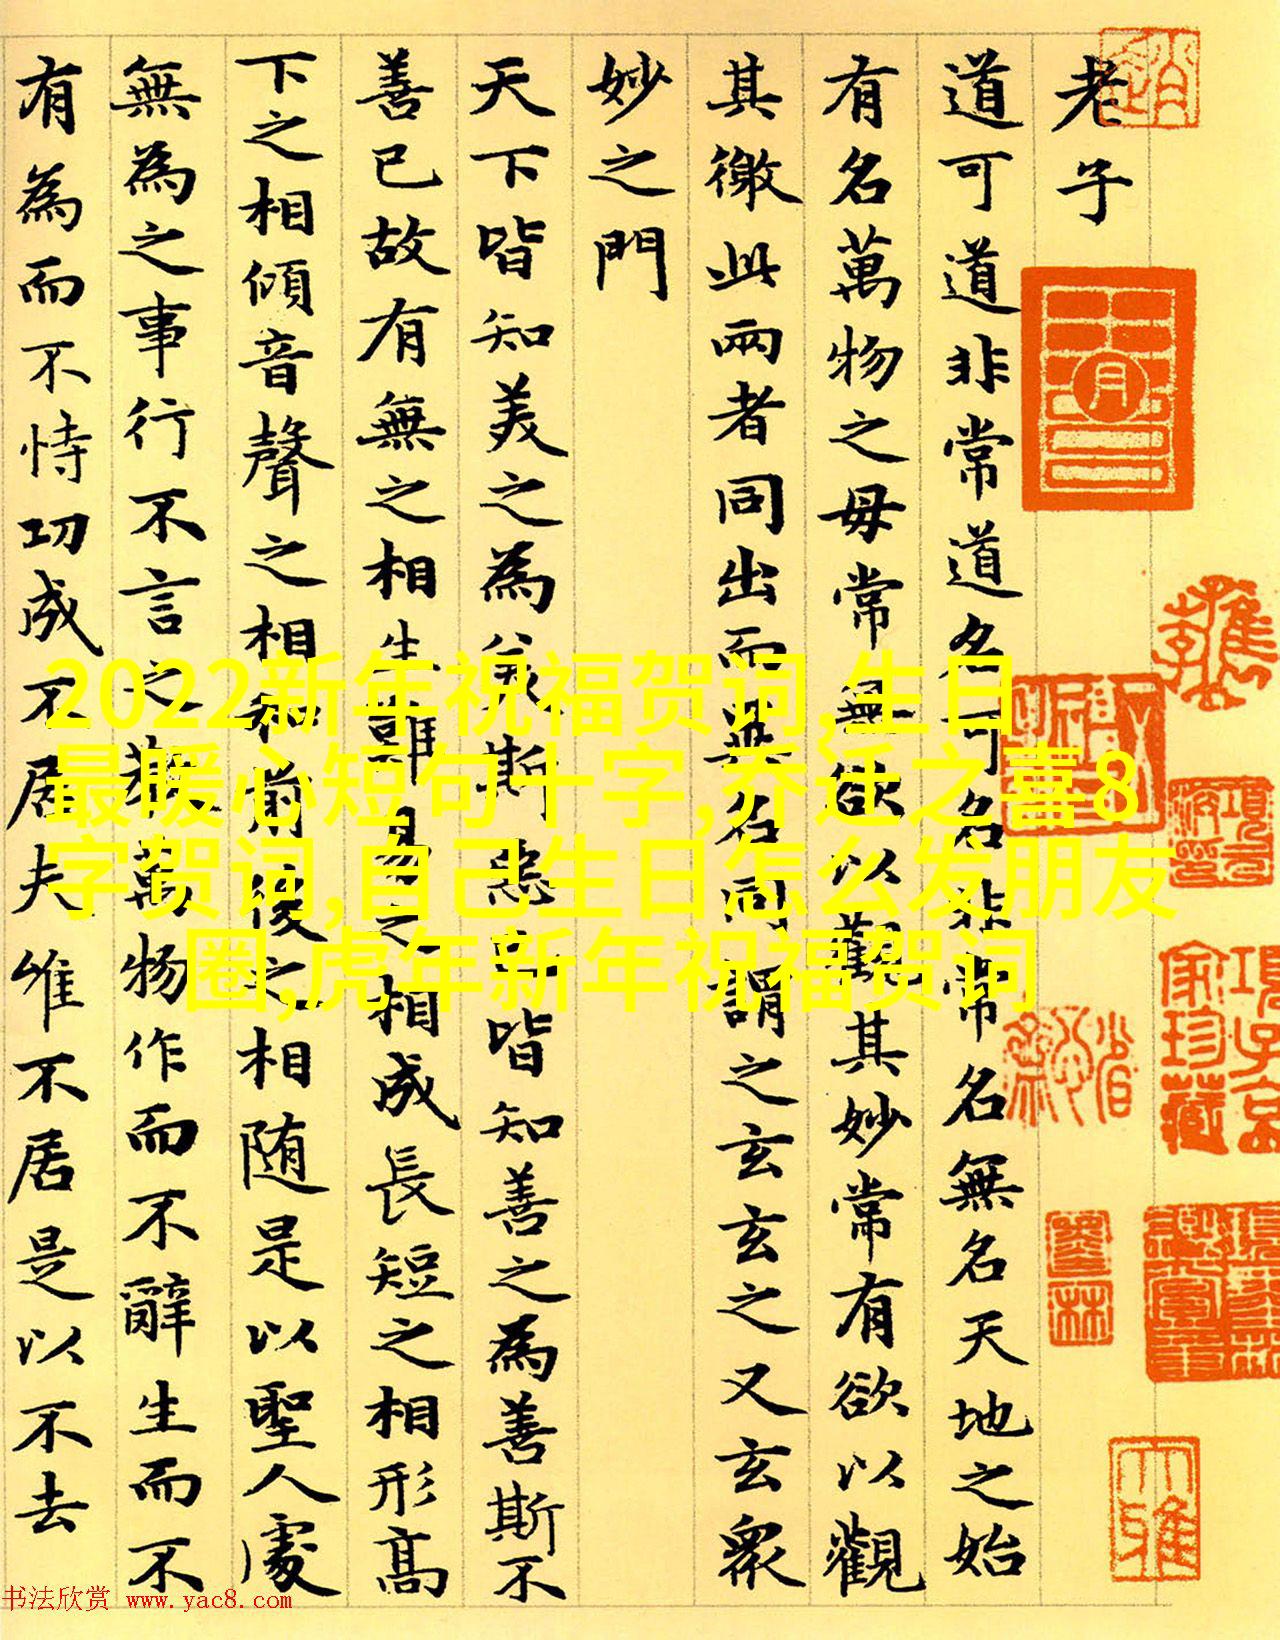 老子
道可道非常道名可名非常名無名天地之始
有名萬物之母常無欲以觀其妙常有欲以觀
其徼此兩者同出而異名同謂之玄玄之又玄衆
妙之門
天下皆知美之為美斯惡已皆知善之為善斯不
善已故有無之相生難易之相成長短之相形高
下之相傾音聲之相和前後之相随是以聖人處
無為之事行不言之教萬物作而不辭生而不
有為而不恃功成不居夫唯不居是以不去
2022新年祝福贺词,生日
最暖心短句十字,乔迁之喜8
字贺词,自己生日怎么发朋友
圈,虎年新年祝福贺词
书法欣赏 www.yac8.com